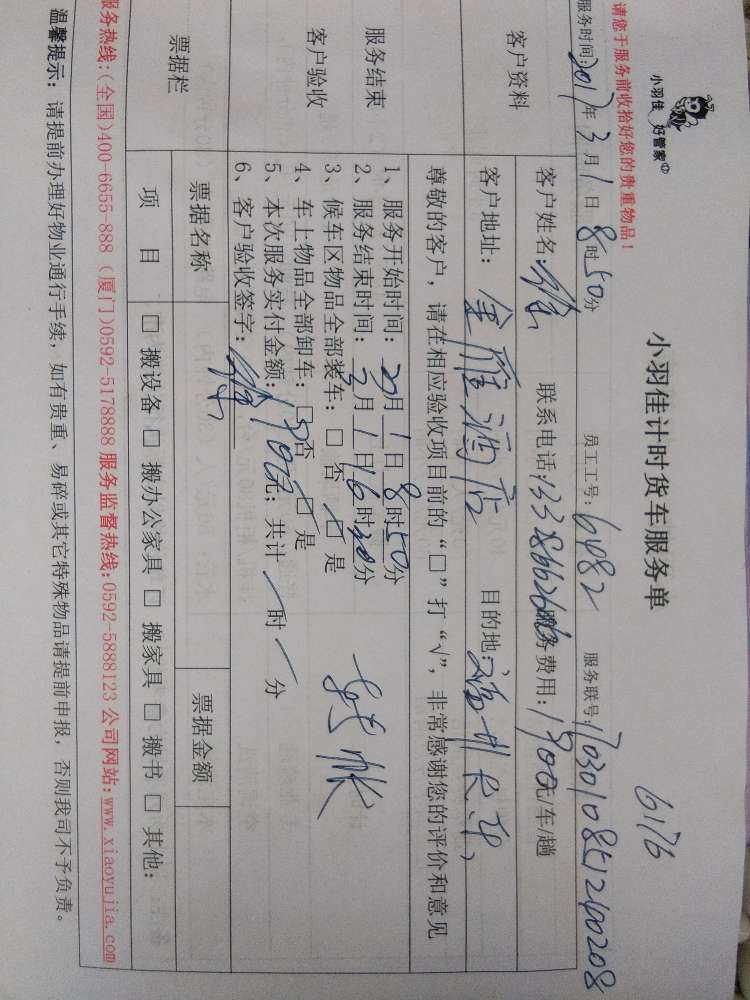 小羽佳 好管家
小羽佳计时货车服务单
6176
请您于服务前收拾好您的贵重物品！
服务时间:2017年3月1日8时50分 员工工号:6482 服务联号:1703010851260208
客户资料
客户姓名: 联系电话: 服务费用:1900元/车/趟
客户地址:金雁酒店 目的地:
服务结束
客户验收
尊敬的客户，请在相应验收项目前的“□”打“√”，非常感谢您的评价和意见
1、服务开始时间:3月1日8时50分
2、服务结束时间:3月1日16时30分
3、候车区物品全部装车:□ 否 □ 是
4、车上物品全部卸车:□ 否 □ 是
5、本次服务实付金额:1900元；共计 时 分
6、客户验收签字:
票据栏
票据名称 票据金额
项 目
□ 搬设备 □ 搬办公家具 □ 搬家具 □ 搬书 □ 其他:
服务热线:(全国)400-6655-888 (厦门)0592-5178888 服务监督热线:0592-5888123 公司网站:www.xiaoyujia.com
温馨提示: 请提前办理好物业通行手续，如有贵重、易碎或其它特殊物品请提前申报，否则我司不予负责。